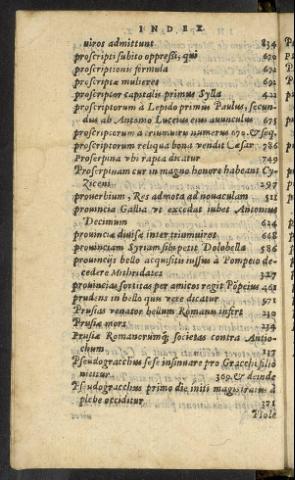 INDEX
uiros admittunt 834
proscripti subito oppressi, qui 670
proscriptionis formula 672
proscriptæ mulieres 692
proscriptor capitalis primus Sylla 422
proscriptorum à Lepido primus Paulus, secun-
dus ab Antonio Lucius eius auunculus 675
proscriptorum à triumuiris numerus 670. & seq.
proscriptorum reliqua bona vendit Cæsar 786
Proserpina vbi rapta dicatur 749
Proserpinam cur in magno honore habeant Cy-
ziceni 297
prouerbium, Res admota ad nouaculam 511
prouincia Gallia vt excedat iubet Antonius
Decimum 614
prouinciæ diuisæ inter triumuiros 668
prouinciam Syriam sibi petit Dolobella 586
prouincijs bello acquisitis iussus à Pompeio de-
cedere Mithridates 327
prouincias sortitas per amicos regit Põpeius 461
prudens in bello quis vere dicatur 571
Prusias venator bellum Romanis infert 230
Prusiæ mors 234
Prusiæ Romanorumq́; societas contra Antio-
chum 117
Pseudogracchus sese insinuare pro Gracchi filio
nititur 369. & deinde
Pseudogracchus primo die initi magistratus à
plebe occiditur 371
Ptole